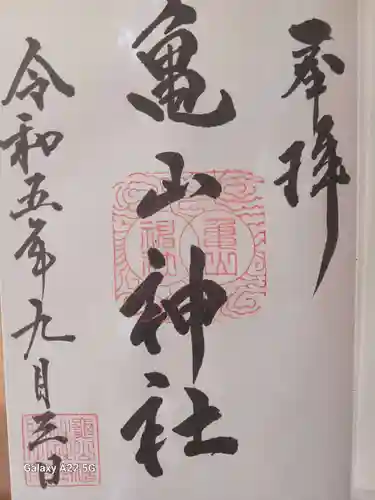 奉拝
亀山神社
亀山
神社
令和五年九月三日
Galaxy A22 5G